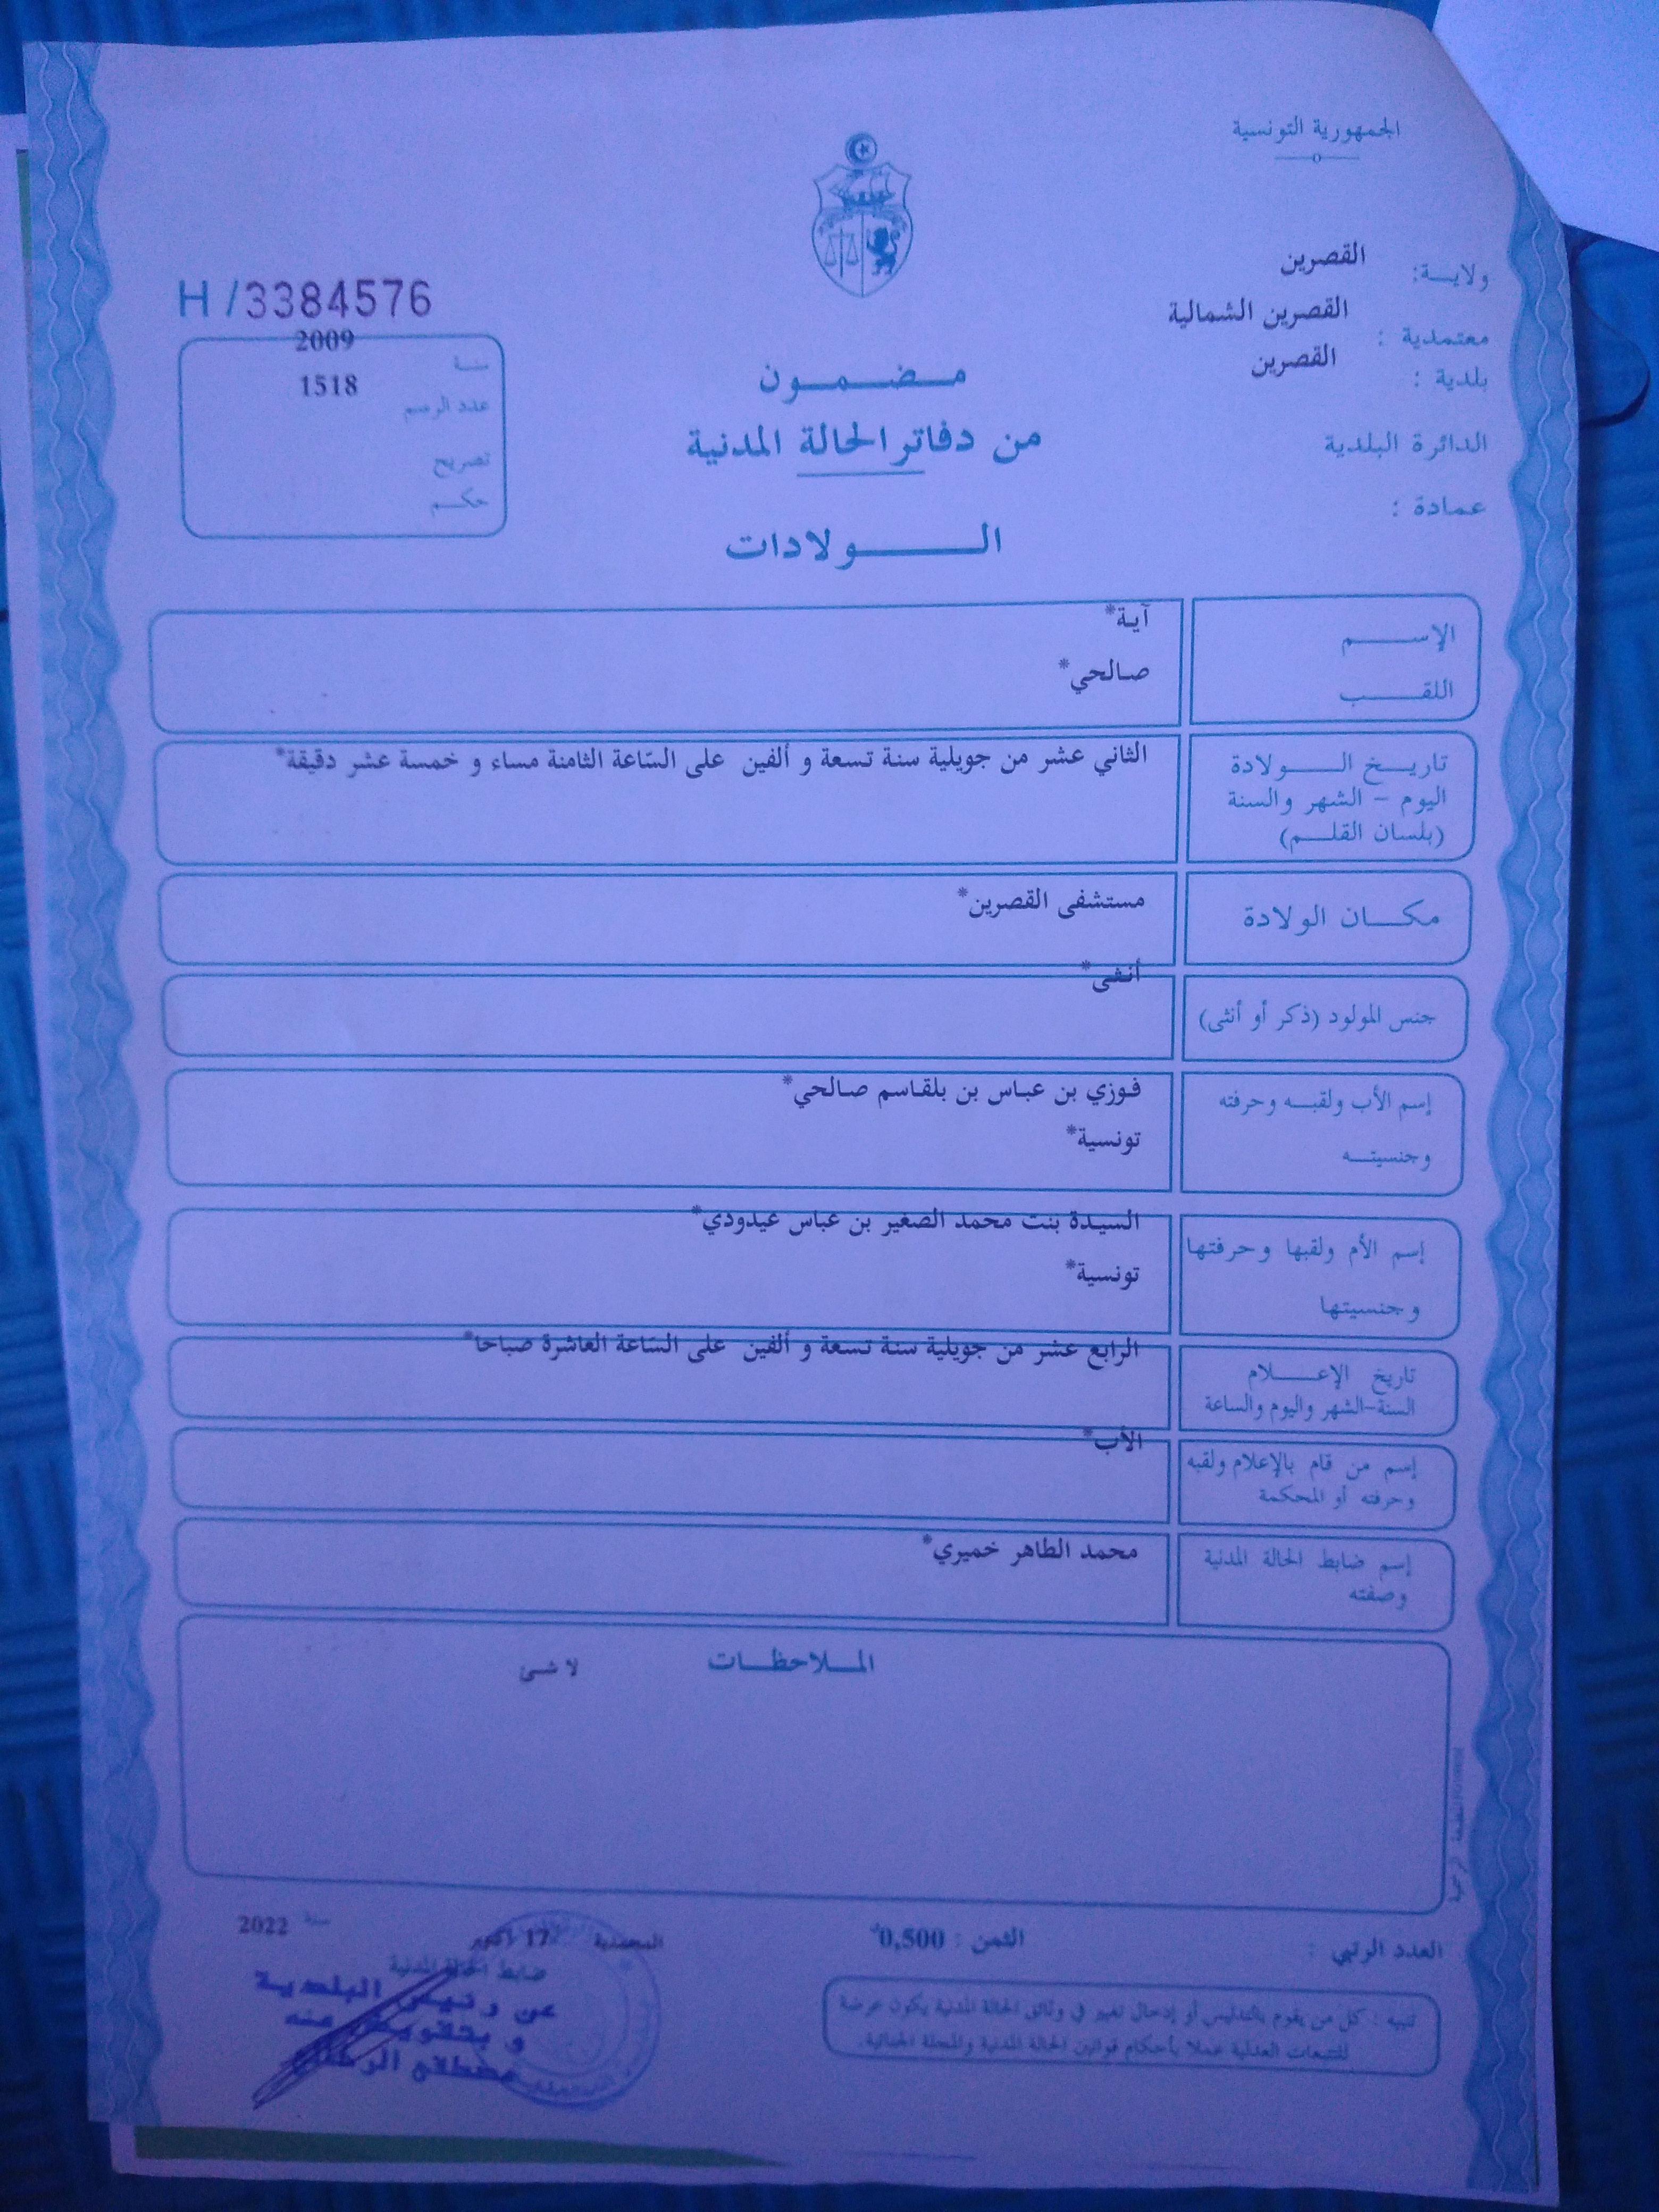 الجمهورية التونسية
ولايــة: القصرين
معتمدية : القصرين الشمالية
بلدية : القصرين
الدائرة البلدية
عمادة :
H /3384576
سنــة 2009
عدد الرسم 1518
تصريح
حكــم
مـضـمـون
من دفاتر الحالة المدنية
الــولادات
الإســـم آية*
اللقـــب صالحي*
تاريــخ الــولادة الثاني عشر من جويلية سنة تسعة و ألفين على السّاعة الثامنة مساء و خمسة عشر دقيقة*
اليوم – الشهر والسنة
(بلسان القلــم)
مكــان الولادة مستشفى القصرين*
جنس المولود (ذكر أو أنثى) أنثى*
إسم الأب ولقبــه وحرفته فوزي بن عباس بن بلقاسم صالحي*
وجنسيتــه تونسية*
إسم الأم ولقبها وحرفتها السيدة بنت محمد الصغير بن عباس عيدودي*
وجنسيتها تونسية*
تاريخ الإعـــلام الرابع عشر من جويلية سنة تسعة و ألفين على السّاعة العاشرة صباحا*
السنة-الشهر واليوم والساعة
إسم من قام بالإعلام ولقبه الأب*
وحرفته أو المحكمة
إسم ضابط الحالة المدنية محمد الطاهر خميري*
وصفته
المــلاحظــات
لا شئ
العدد الرتبي :
الثمن : 0,500د
المحمدية 17 أكتوبر سنة 2022
ضابط الحالة المدنية
عن رئيس البلدية
و بتفويض منه
تنبيه : كل من يقوم بالتدليس أو إدخال تغيير في وثائق الحالة المدنية يكون عرضة
للتتبعات العدلية عملا بأحكام قوانين الحالة المدنية والمجلة الجنائية.